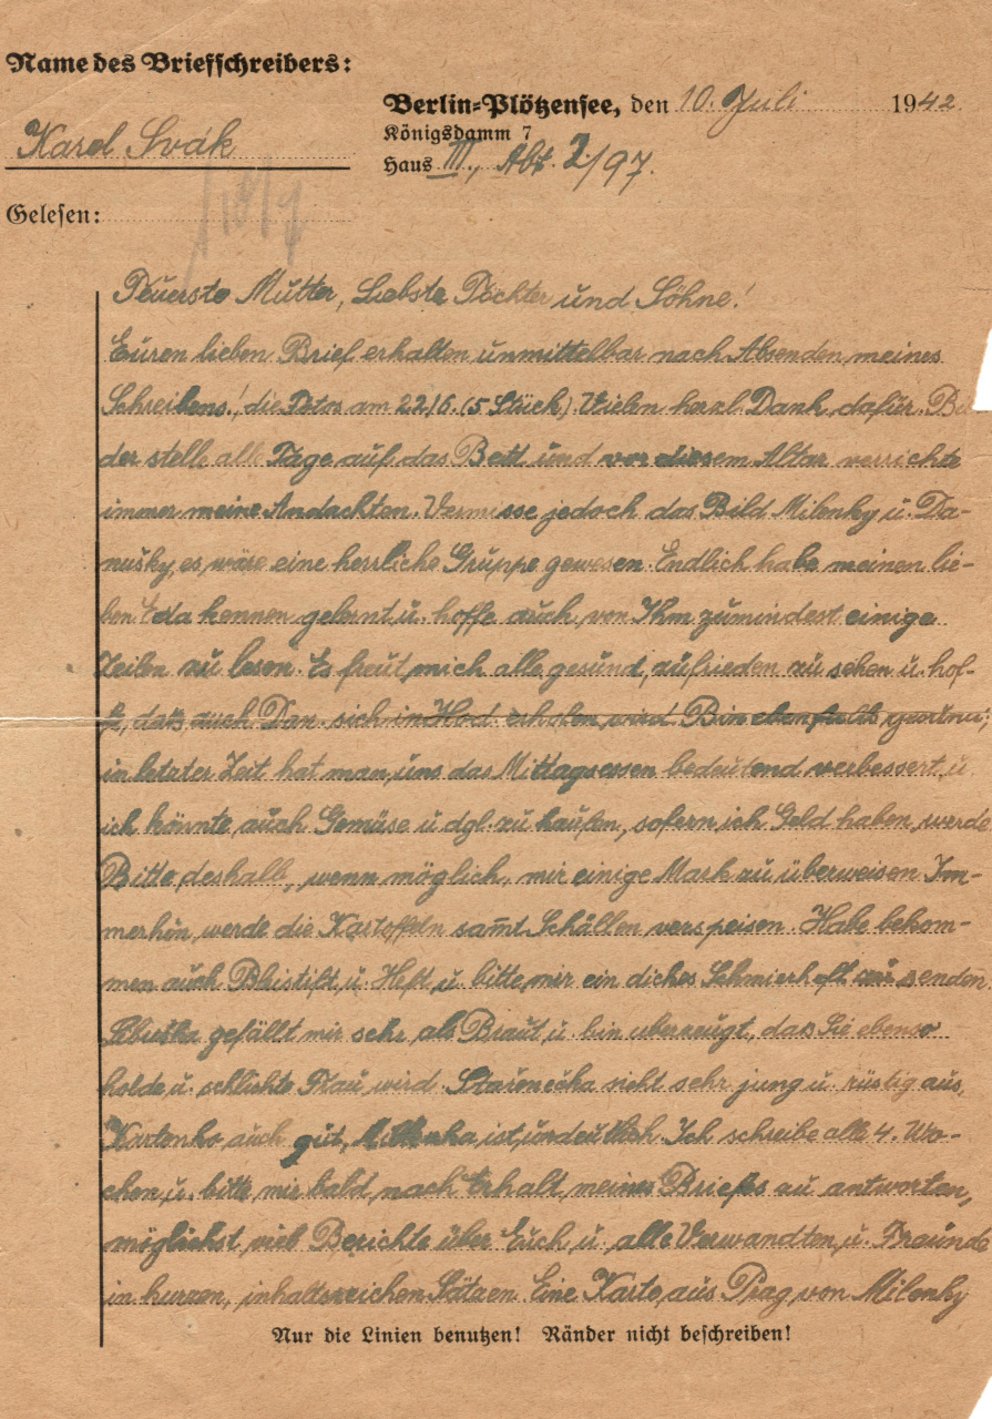 Name des Briefschreibers:
Berlin-Plötzensee, den 10. Juli 1942
Karel Svák
Königsdamm 7
Haus III., Abt. 2/97.
Gelesen:
Teuerste Mutter, Liebste Töchter und Söhne!
Euren lieben Brief erhalten unmittelbar nach Absenden meines
Schreibens!, die Fotos am 22/6. (5 Stück). Vielen herzl. Dank dafür. Bil
der stelle alle Tage auf das Bett und vor diesem Altar verrichte
immer meine Andachten. Vermisse jedoch das Bild Milenky u. Da-
nušky, es wäre eine herrliche Gruppe gewesen. Endlich habe meinen lie-
ben kennen gelernt u. hoffe auch, von Ihm zumindest einige
Zeilen zu lesen. Es freut mich alle gesund, zufrieden zu sehen u. hof-
fe, dats auch Dan. sich in Hod. erholen wird. Bin ebenfalls
in letzter Zeit hat man uns das Mittagsessen bedeutend verbessert u.
ich könnte auch Gemüse u dgl. zu kaufen, sofern ich Geld haben werde
Bitte deshalb, wenn möglich, mir einige Mark zu überweisen. Im-
merhin werde die Kartoffeln samt Schällen verspeisen. Habe bekom-
men auch Bleistift u. Heft u. bitte mir ein dickes Schmierheft zu senden.
Libuška gefällt mir sehr als Braut u. bin uberzeugt, das Sie ebenso
holde u. schlichte Frau wird. Stařenečka sieht sehr jung u. rüstig aus,
auch gut, ist undeutlich. Ich schreibe alle 4. Wo-
chen u. bitte mir bald nach Erhalt meines Briefes zu antworten,
möglichst viel Berichte über Euch u. alle Verwandten u. Freunde
in kurzen, inhaltsreichen Sätzen. Eine Karte aus Prag von Milenky
Nur die Linien benutzen! Ränder nicht beschreiben!